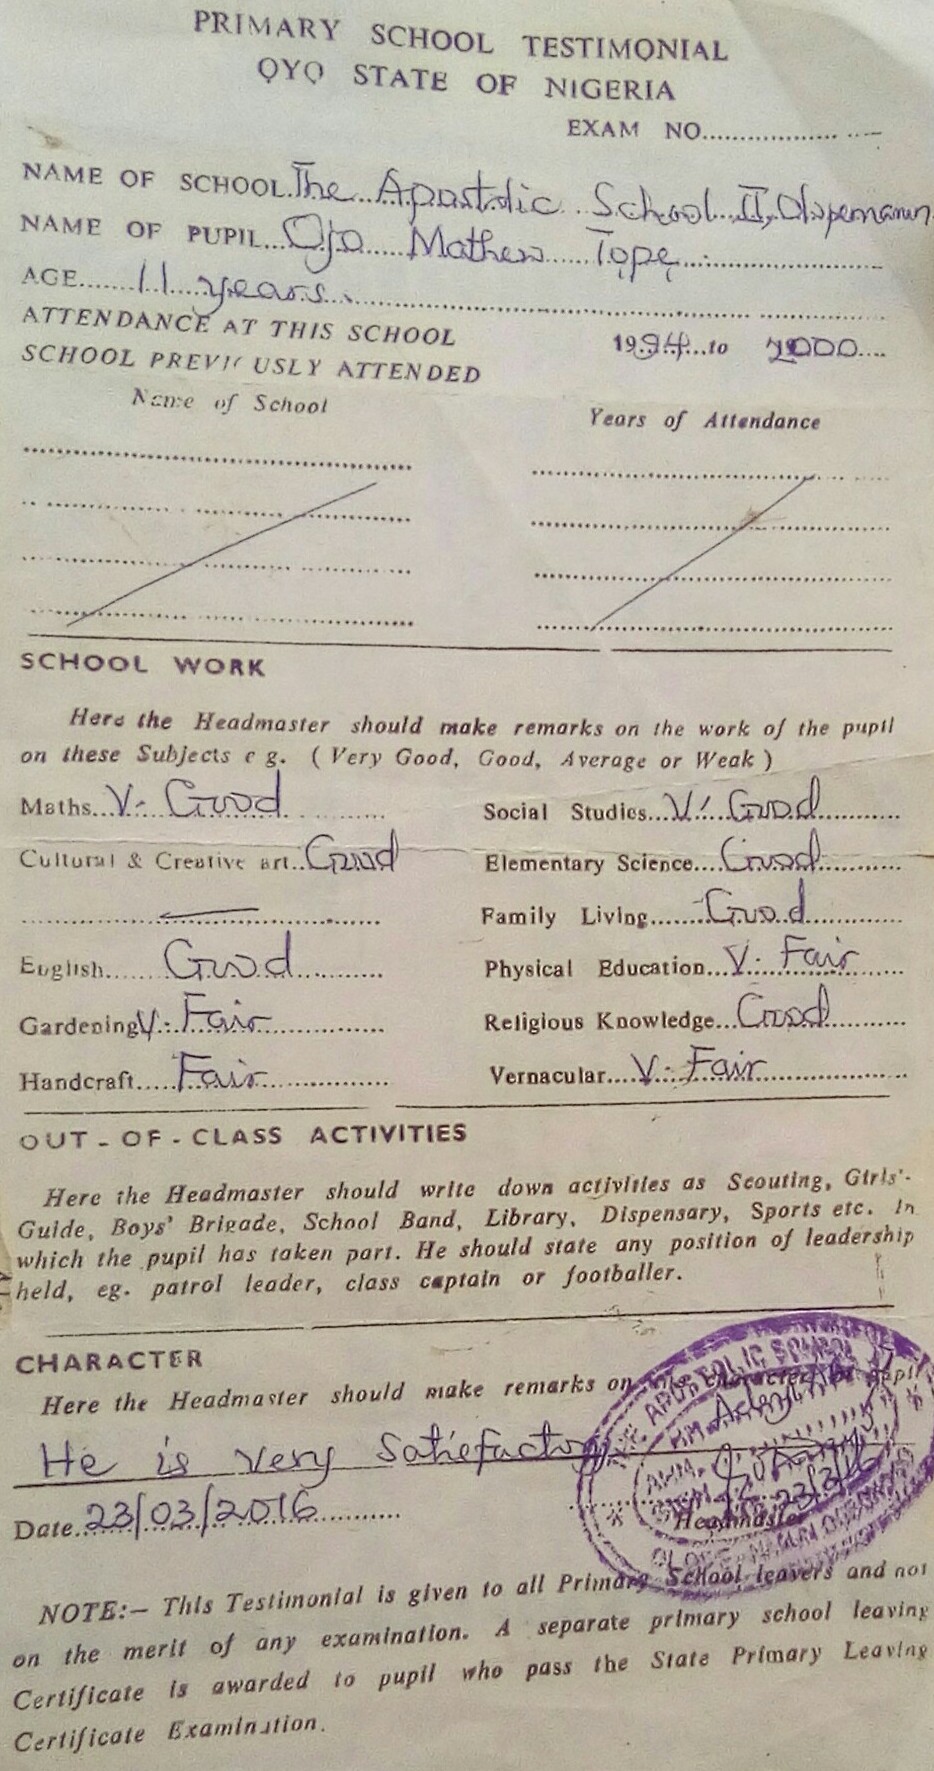 PRIMARY SCHOOL TESTIMONIAL
OYO STATE OF NIGERIA
EXAM NO.....................
NAME OF SCHOOL. The Apostolic School II, Olopemarun
NAME OF PUPIL... Ojo Mathew Tope
AGE...... 11 years.
ATTENDANCE AT THIS SCHOOL 1994 to 2000
SCHOOL PREVIOUSLY ATTENDED
Name of School Years of Attendance
SCHOOL WORK
Here the Headmaster should make remarks on the work of the pupil
on these Subjects e g. ( Very Good, Good, Average or Weak )
Maths.. V. Good Social Studies... V. Good
Cultural & Creative art.. Good Elementary Science.... Good
Family Living...... Good
English...... Good Physical Education... V. Fair
Gardening V. Fair Religious Knowledge... Good
Handcraft..... Fair Vernacular.... V. Fair
OUT - OF - CLASS ACTIVITIES
Here the Headmaster should write down activities as Scouting, Girls'-
Guide, Boys' Brigade, School Band, Library, Dispensary, Sports etc. In
which the pupil has taken part. He should state any position of leadership
held, eg. patrol leader, class captain or footballer.
CHARACTER
Here the Headmaster should make remarks on the character of pupil
He is very Satisfactory
Date.. 23/03/2016
23/3/16
Headmaster
NOTE:– This Testimonial is given to all Primary School leavers and not
on the merit of any examination. A separate primary school leaving
Certificate is awarded to pupil who pass the State Primary Leaving
Certificate Examination.